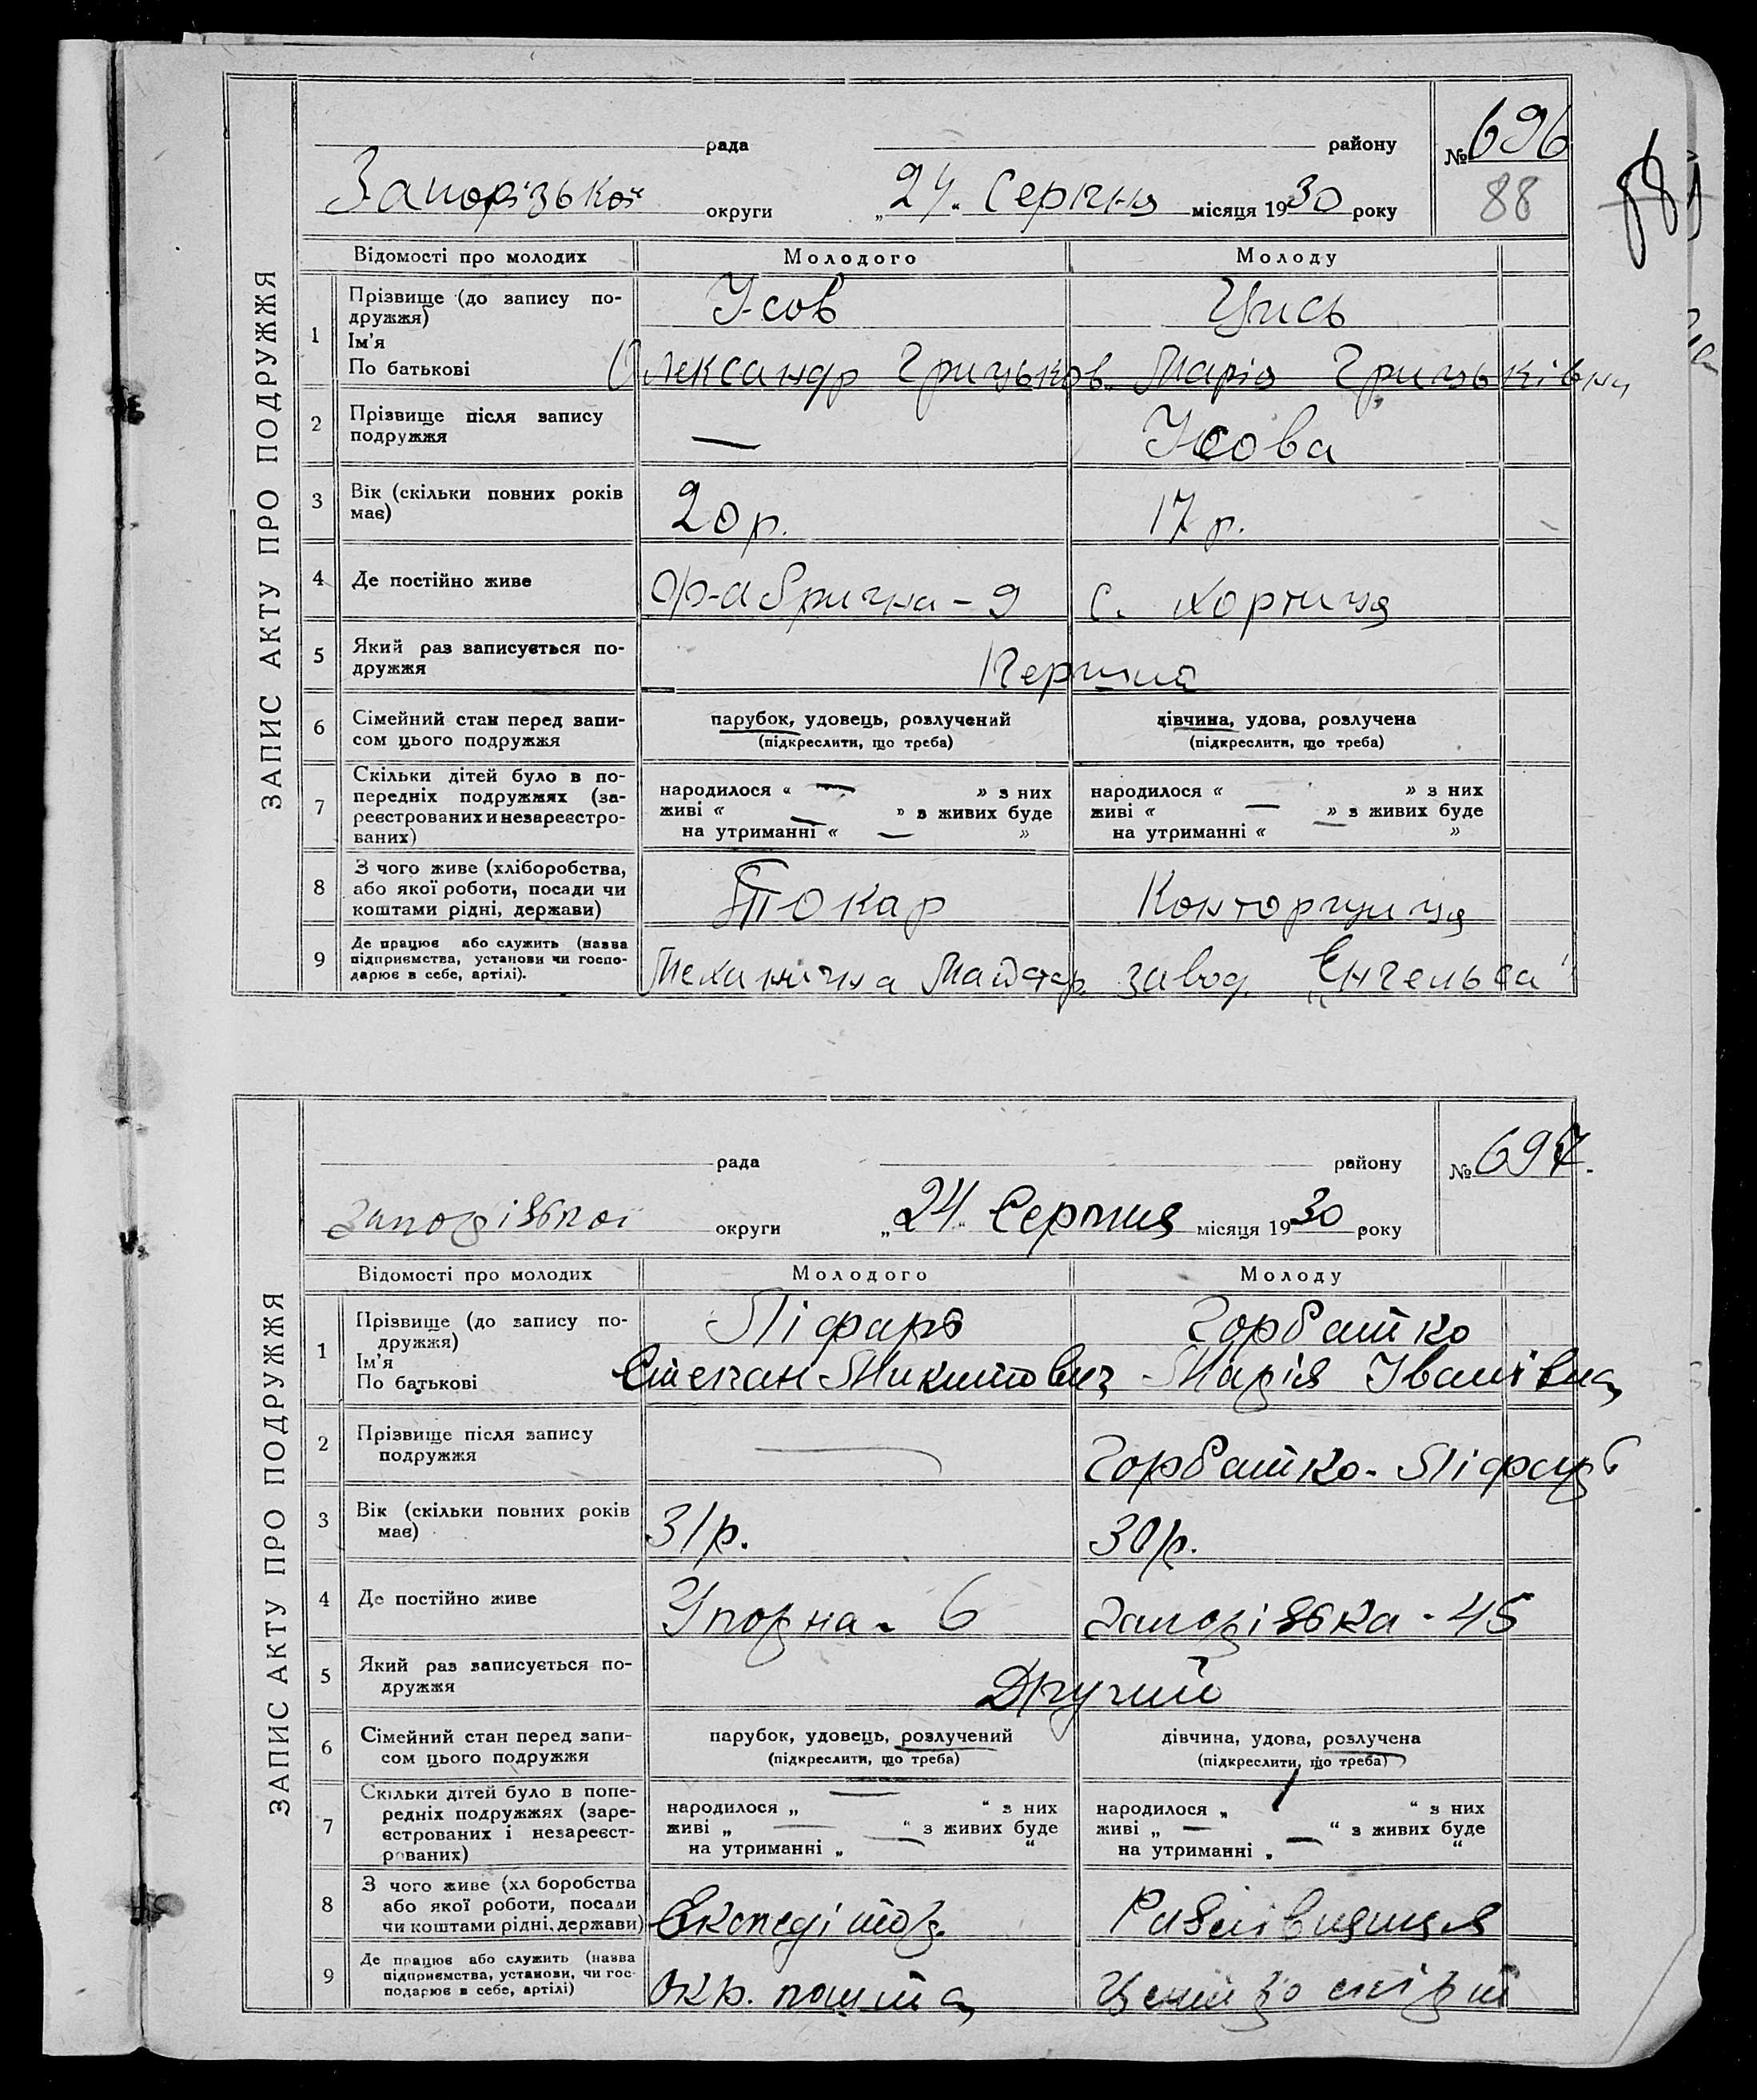 рада району № 696
Запорізької округи „24" Серпня місяця 1930 року 88
ЗАПИС АКТУ ПРО ПОДРУЖЖЯ
Відомості про молодих Молодого Молоду
1 Прізвище (до запису по-
дружжя) Усов Цись
Ім'я
По батькові Олександр Грицьков. Марія Грицьківна
2 Прізвище після запису
подружжя — Усова
3 Вік (скільки повних років
має) 20 р. 17 р.
4 Де постійно живе Ф-абрична - 9 с. Хортиця
5 Який раз записується по-
дружжя Перший
6 Сімейний стан перед запи-
сом цього подружжя парубок, удовець, розлучений дівчина, удова, розлучена
(підкреслити, що треба) (підкреслити, що треба)
7 Скільки дітей було в по-
передніх подружжях (за-
реєстрованих и незареєстро-
ваних)
народилося « — » з них народилося « » з них
живі « — » з живих буде живі « — » з живих буде
на утриманні « — » на утриманні « — »
8 З чого живе (хліборобства,
або якої роботи, посади чи
коштами рідні, держави) Токар Конторщиця
9 Де працює або служить (назва
підприємства, установи чи госпо-
дарює в себе, артілі). Механична Майстер. завод „Енгельса"
рада району № 697.
Запорізької округи „24" Серпня місяця 1930 року
ЗАПИС АКТУ ПРО ПОДРУЖЖЯ
Відомості про молодих Молодого Молоду
1 Прізвище (до запису по-
дружжя) Піфарь Горбатко
Ім'я
По батькові Степан Микитович Марія Іванівна
2 Прізвище після запису
подружжя — Горбатко-Піфарь
3 Вік (скільки повних років
має) 31 р. 30 р.
4 Де постійно живе Упорна - 6 Запорізька - 45
5 Який раз записується по-
дружжя Другий
6 Сімейний стан перед запи-
сом цього подружжя парубок, удовець, розлучений дівчина, удова, розлучена
(підкреслити, що треба) (підкреслити, що треба)
7 Скільки дітей було в попе-
редніх подружжях (заре-
єстрованих і незареєст-
рованих)
народилося „ — " з них народилося „ 1 " з них
живі „ — " з живих буде живі „ — " з живих буде
на утриманні „ — " на утриманні „ — "
8 З чого живе (хл боробства
або якої роботи, посади
чи коштами рідні, держави) Експедітор.
9 Де працює або служить (назва
підприємства, установи, чи гос-
подарює в себе, артілі) Окр. пошта Центроспірт